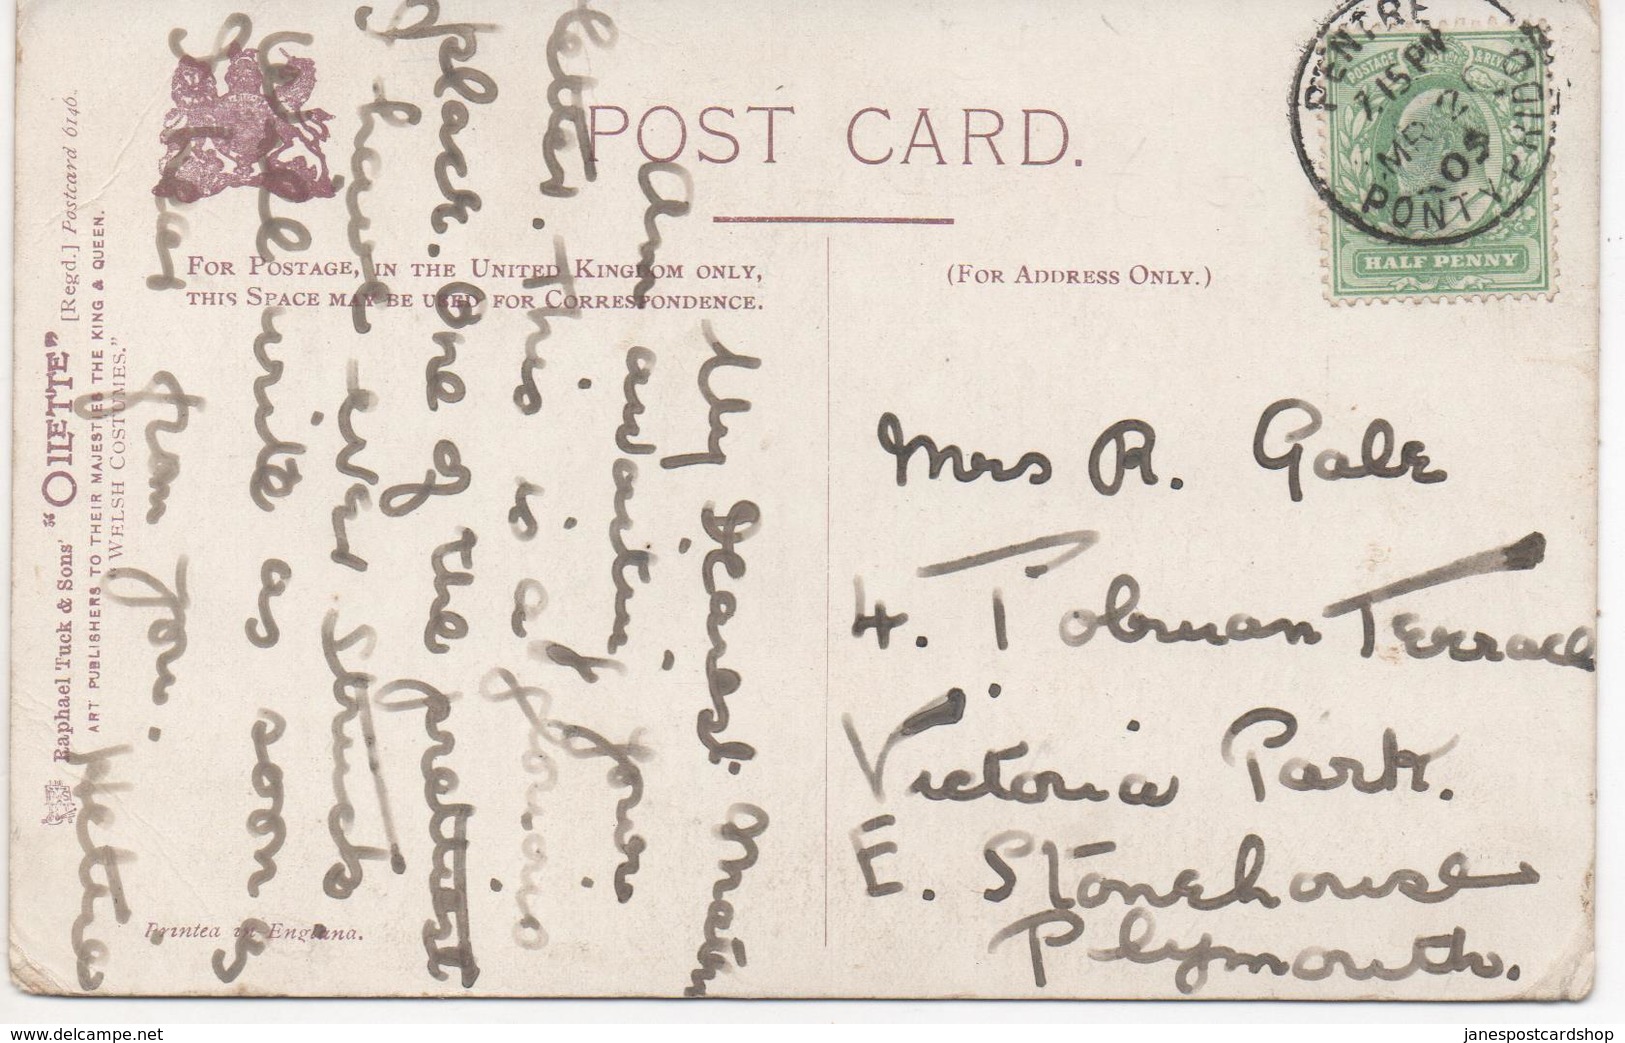 POST CARD.
FOR POSTAGE, IN THE UNITED KINGDOM ONLY,
THIS SPACE MAY BE USED FOR CORRESPONDENCE.
(FOR ADDRESS ONLY.)
Raphael Tuck & Sons' "OILETTE" [Regd.] Postcard 6146.
ART PUBLISHERS TO THEIR MAJESTIES THE KING & QUEEN.
"WELSH COSTUMES."
Printed in England.
POSTAGE & REVENUE
HALF PENNY
PENTRE
7.15 PM
MR
05
PONTYPRIDD
Mrs R. Gale
4. Tobruan Terrace
Victoria Park.
E. Stonehouse
Plymouth.
My Dearest
Am awaiting your
letter. This is a glorious
place. One of the prettiest
I have ever struck
Will write as soon as
I hear from you.
janespostcards.ie
janespostcardshop